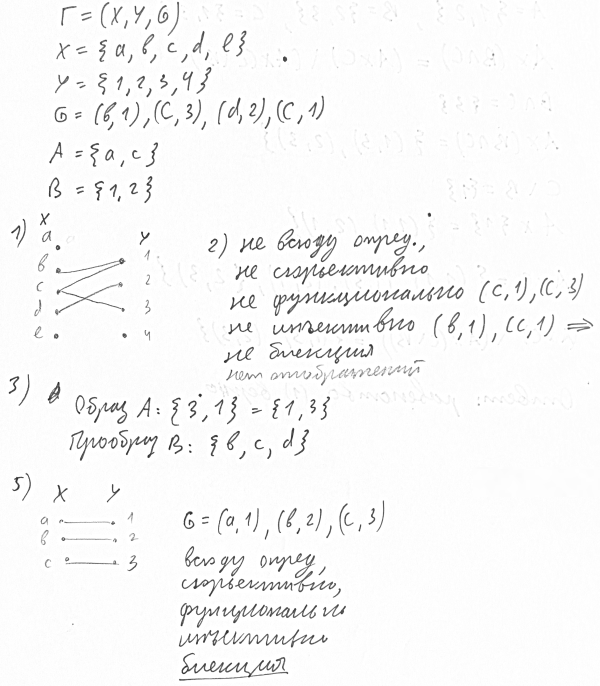 Г = (X, Y, G)
X = {a, в, c, d, e}
Y = {1, 2, 3, 4}
G = (в, 1), (c, 3), (d, 2), (c, 1)
A = {a, c}
B = {1, 2}
1) X Y
a
в 1
c 2
d 3
e 4
2) не всюду опред.,
не сюръективно
не функционально (c, 1), (c, 3)
не инъективно (в, 1), (c, 1) ⇒
не биекция
нет отображений
3) Образ A: {3, 1} = {1, 3}
Прообраз B: {в, c, d}
5) X Y
a 1
в 2
c 3
G = (a, 1), (в, 2), (c, 3)
всюду опред,
сюръективно,
функционально
инъективно
биекция